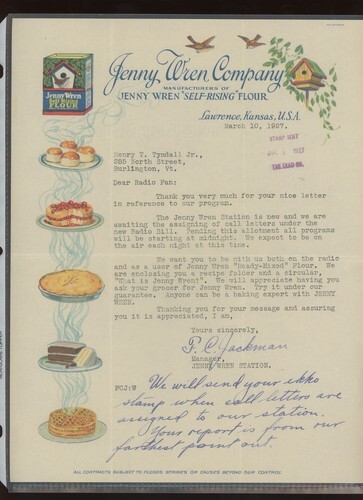 Jenny Wren Company
MANUFACTURERS OF
JENNY WREN "SELF-RISING" FLOUR
Lawrence, Kansas, U.S.A.
March 10, 1927.
Jenny Wren
FLOUR
Henry T. Tyndall Jr.,
285 North Street,
Burlington, Vt.
Dear Radio Fan:
Thank you very much for your nice letter
in reference to our program.
The Jenny Wren Station is new and we are
awaiting the assigning of call letters under the
new Radio Bill. Pending this allotment all programs
will be starting at midnight. We expect to be on
the air each night at this time.
We want you to be with us both on the radio
and as a user of Jenny Wren "Ready-Mixed" Flour. We
are enclosing you a recipe folder and a circular,
"What is Jenny Wren". We will appreciate having you
ask your grocer for Jenny Wren. Try it under our
guarantee. Anyone can be a baking expert with JENNY
WREN.
Thanking you for your message and assuring
you it is appreciated, I am,
Yours sincerely,
P. C. Jackman
Manager,
JENNY WREN STATION.
PCJ:W
We will send your ekko
stamp when call letters are
assigned to our station.
Your report is from our
farthest point out.
ALL CONTRACTS SUBJECT TO FLOODS, STRIKES OR CAUSES BEYOND OUR CONTROL